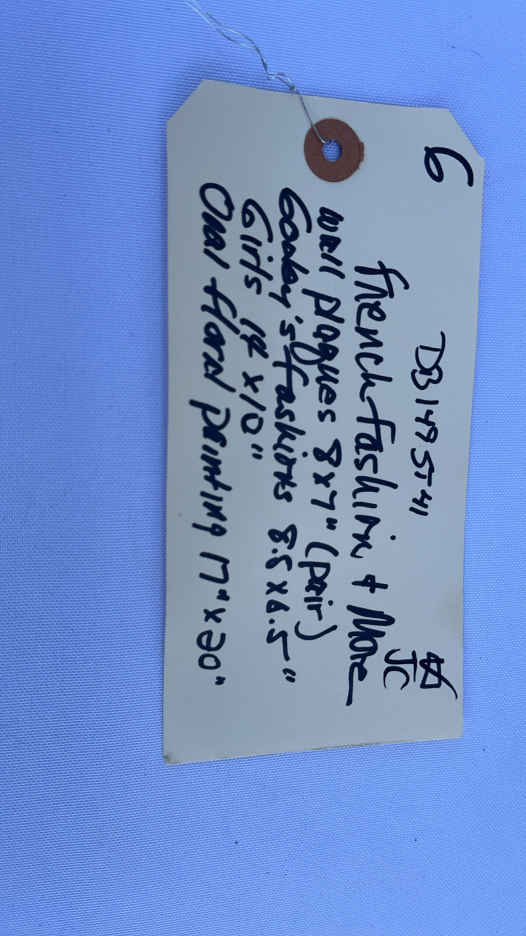 6
DB1495T41
JC
French Fashion, + More
Wall plaques 8x7" (pair)
Godey's Fashions 8.5x6.5"
Girls 14 x10"
Oval floral painting 17"x20"